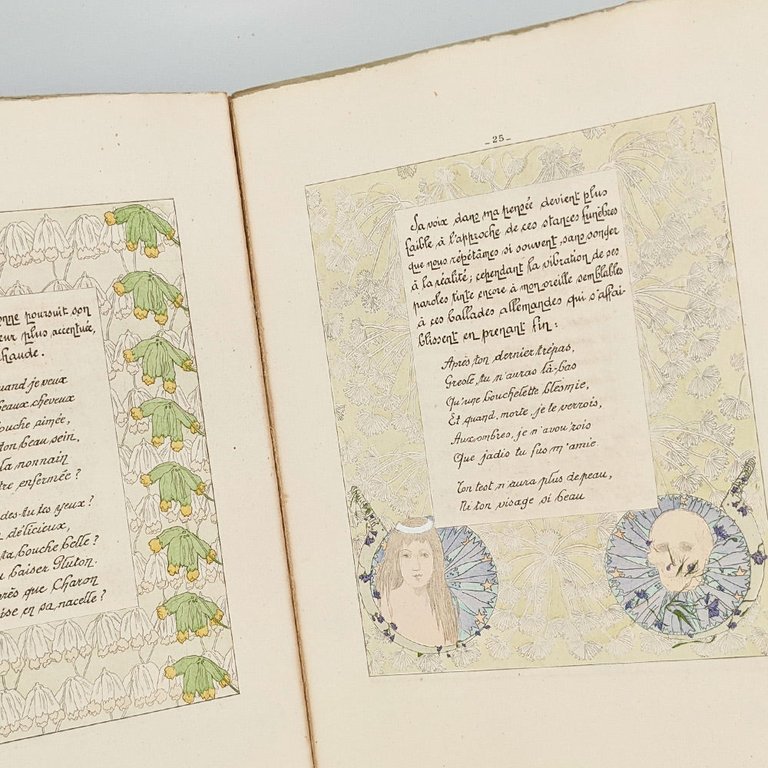 onne poursuit son
eur plus accentuée,
chaude.
uand je veux
beaux cheveux
ouche aimée,
ton beau sein,
la nonnain
tre enfermée?
des-tu tes yeux?
n délicieux,
ta bouche belle?
u baiser Gluton.
près que Charon
ise en sa nacelle?
-25-
Sa voix dans ma pensée devient plus
faible, à l'approche de ces stances funèbres
que nous répétâmes si souvent, sans songer
à la réalité; cependant la vibration de ses
paroles tinte encore à mon oreille semblables
à ces ballades allemandes qui s'affai-
blissent en prenant fin:
Après ton dernier trépas,
Gresle, tu n'auras là-bas
Qu'une bouchelette blesmie,
Et quand, morte, je te verrois,
Aux ombres, je n'avou'rois
Que jadis tu fus m'amie.
Ton test n'aura plus de peau,
Ni ton visage si beau